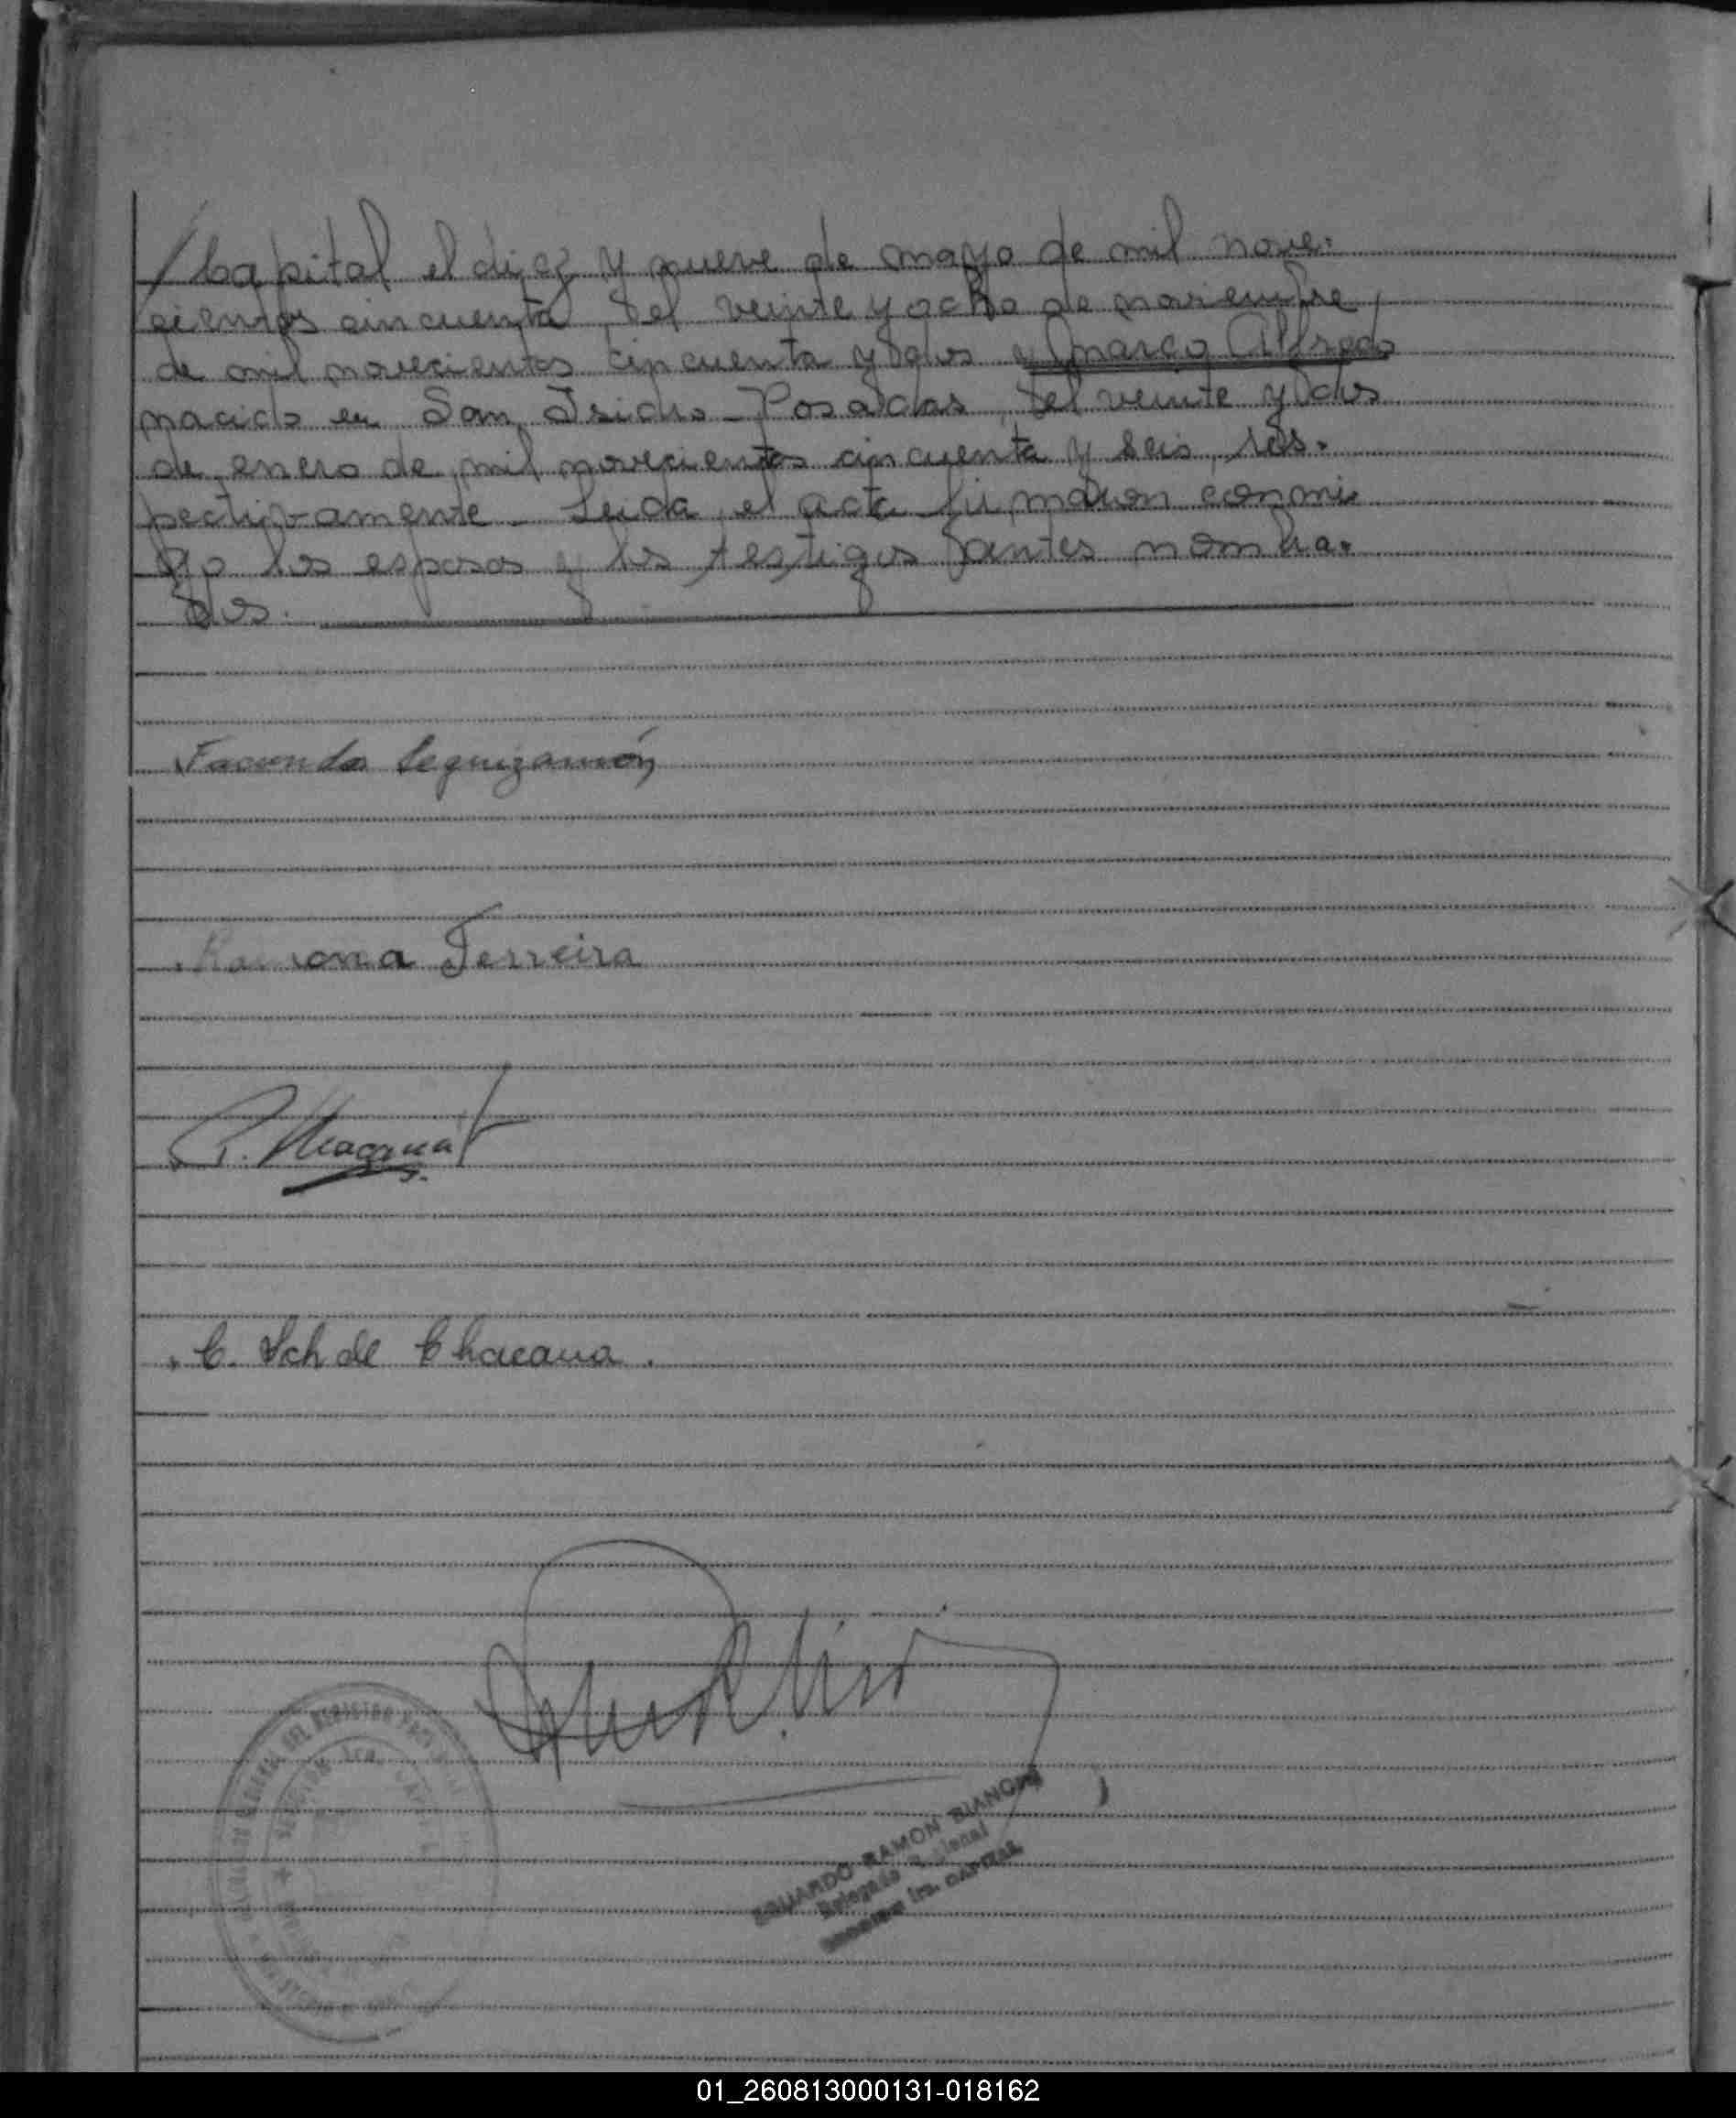 /Capital el diez y nueve de mayo de mil nove-
cientos cincuenta, el veinte y ocho de noviembre,
de mil novecientos cincuenta y dos y Marco Alfredo
nacido en San Isidro - Posadas, el veinte y dos
de enero de mil novecientos cincuenta y seis, res-
pectivamente. Leida el acta firmaron conmi
go los esposos y los testigos antes nombra-
dos.
Facundo Leguizamón
Ramona Ferreira
C. Sch de Chacana.
EDUARDO RAMON BIANCHI
Delegado
1ra. CAPITAL
01_260813000131-018162